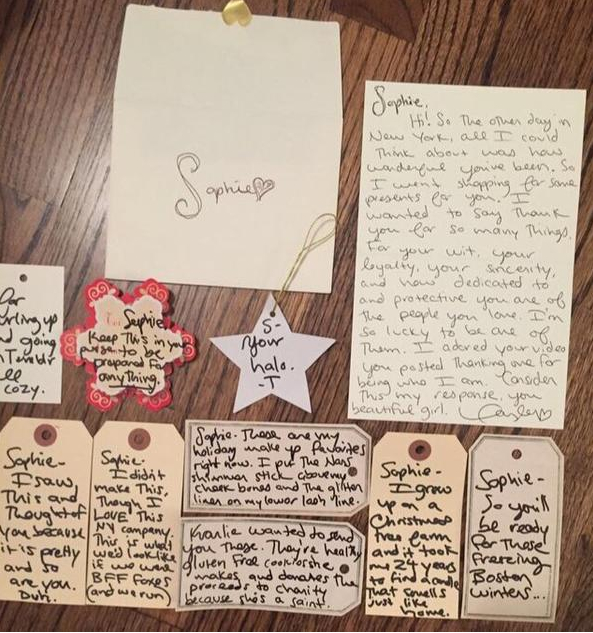 Sophie♡
Sophie,
Hi! So the other day in
New York, all I could
think about was how
wonderful you've been. So
I went shopping for some
presents for you. I
wanted to say thank
you for so many things.
For your wit, your
loyalty, your sincerity,
and how dedicated to
and protective you are of
the people you love. I'm
so lucky to be one of
them. I adored your video
you posted thanking me for
being who I am. Consider
this my response, you
beautiful girl.
For
curling up
and going
on Tumblr
all
cozy.
To: Sophie,
Keep this in your
purse to be
prepared for
anything.
S-
your
halo.
-T
Sophie-
I saw
this and
thought of
you because
it is pretty
and so
are you.
Duh.
Sophie-
I didn't
make this,
though I
LOVE this
NY company.
This is what
we'd look like
if we were
BFF foxes
(and we run)
Sophie- These are my
holiday make up favorites
right now. I put the Nars
shimmer stick above my
cheek bones and the glitter
liner on my lower lash line.
Karlie wanted to send
you these. They're healthy
gluten free cookies she
makes, and donates the
proceeds to charity
because she's a saint.
Sophie-
I grew
up on a
Christmas
tree farm
and it took
me 24 years
to find a candle
that smells
just like
home.
Sophie-
So you'll
be ready
for those
freezing
Boston
winters...